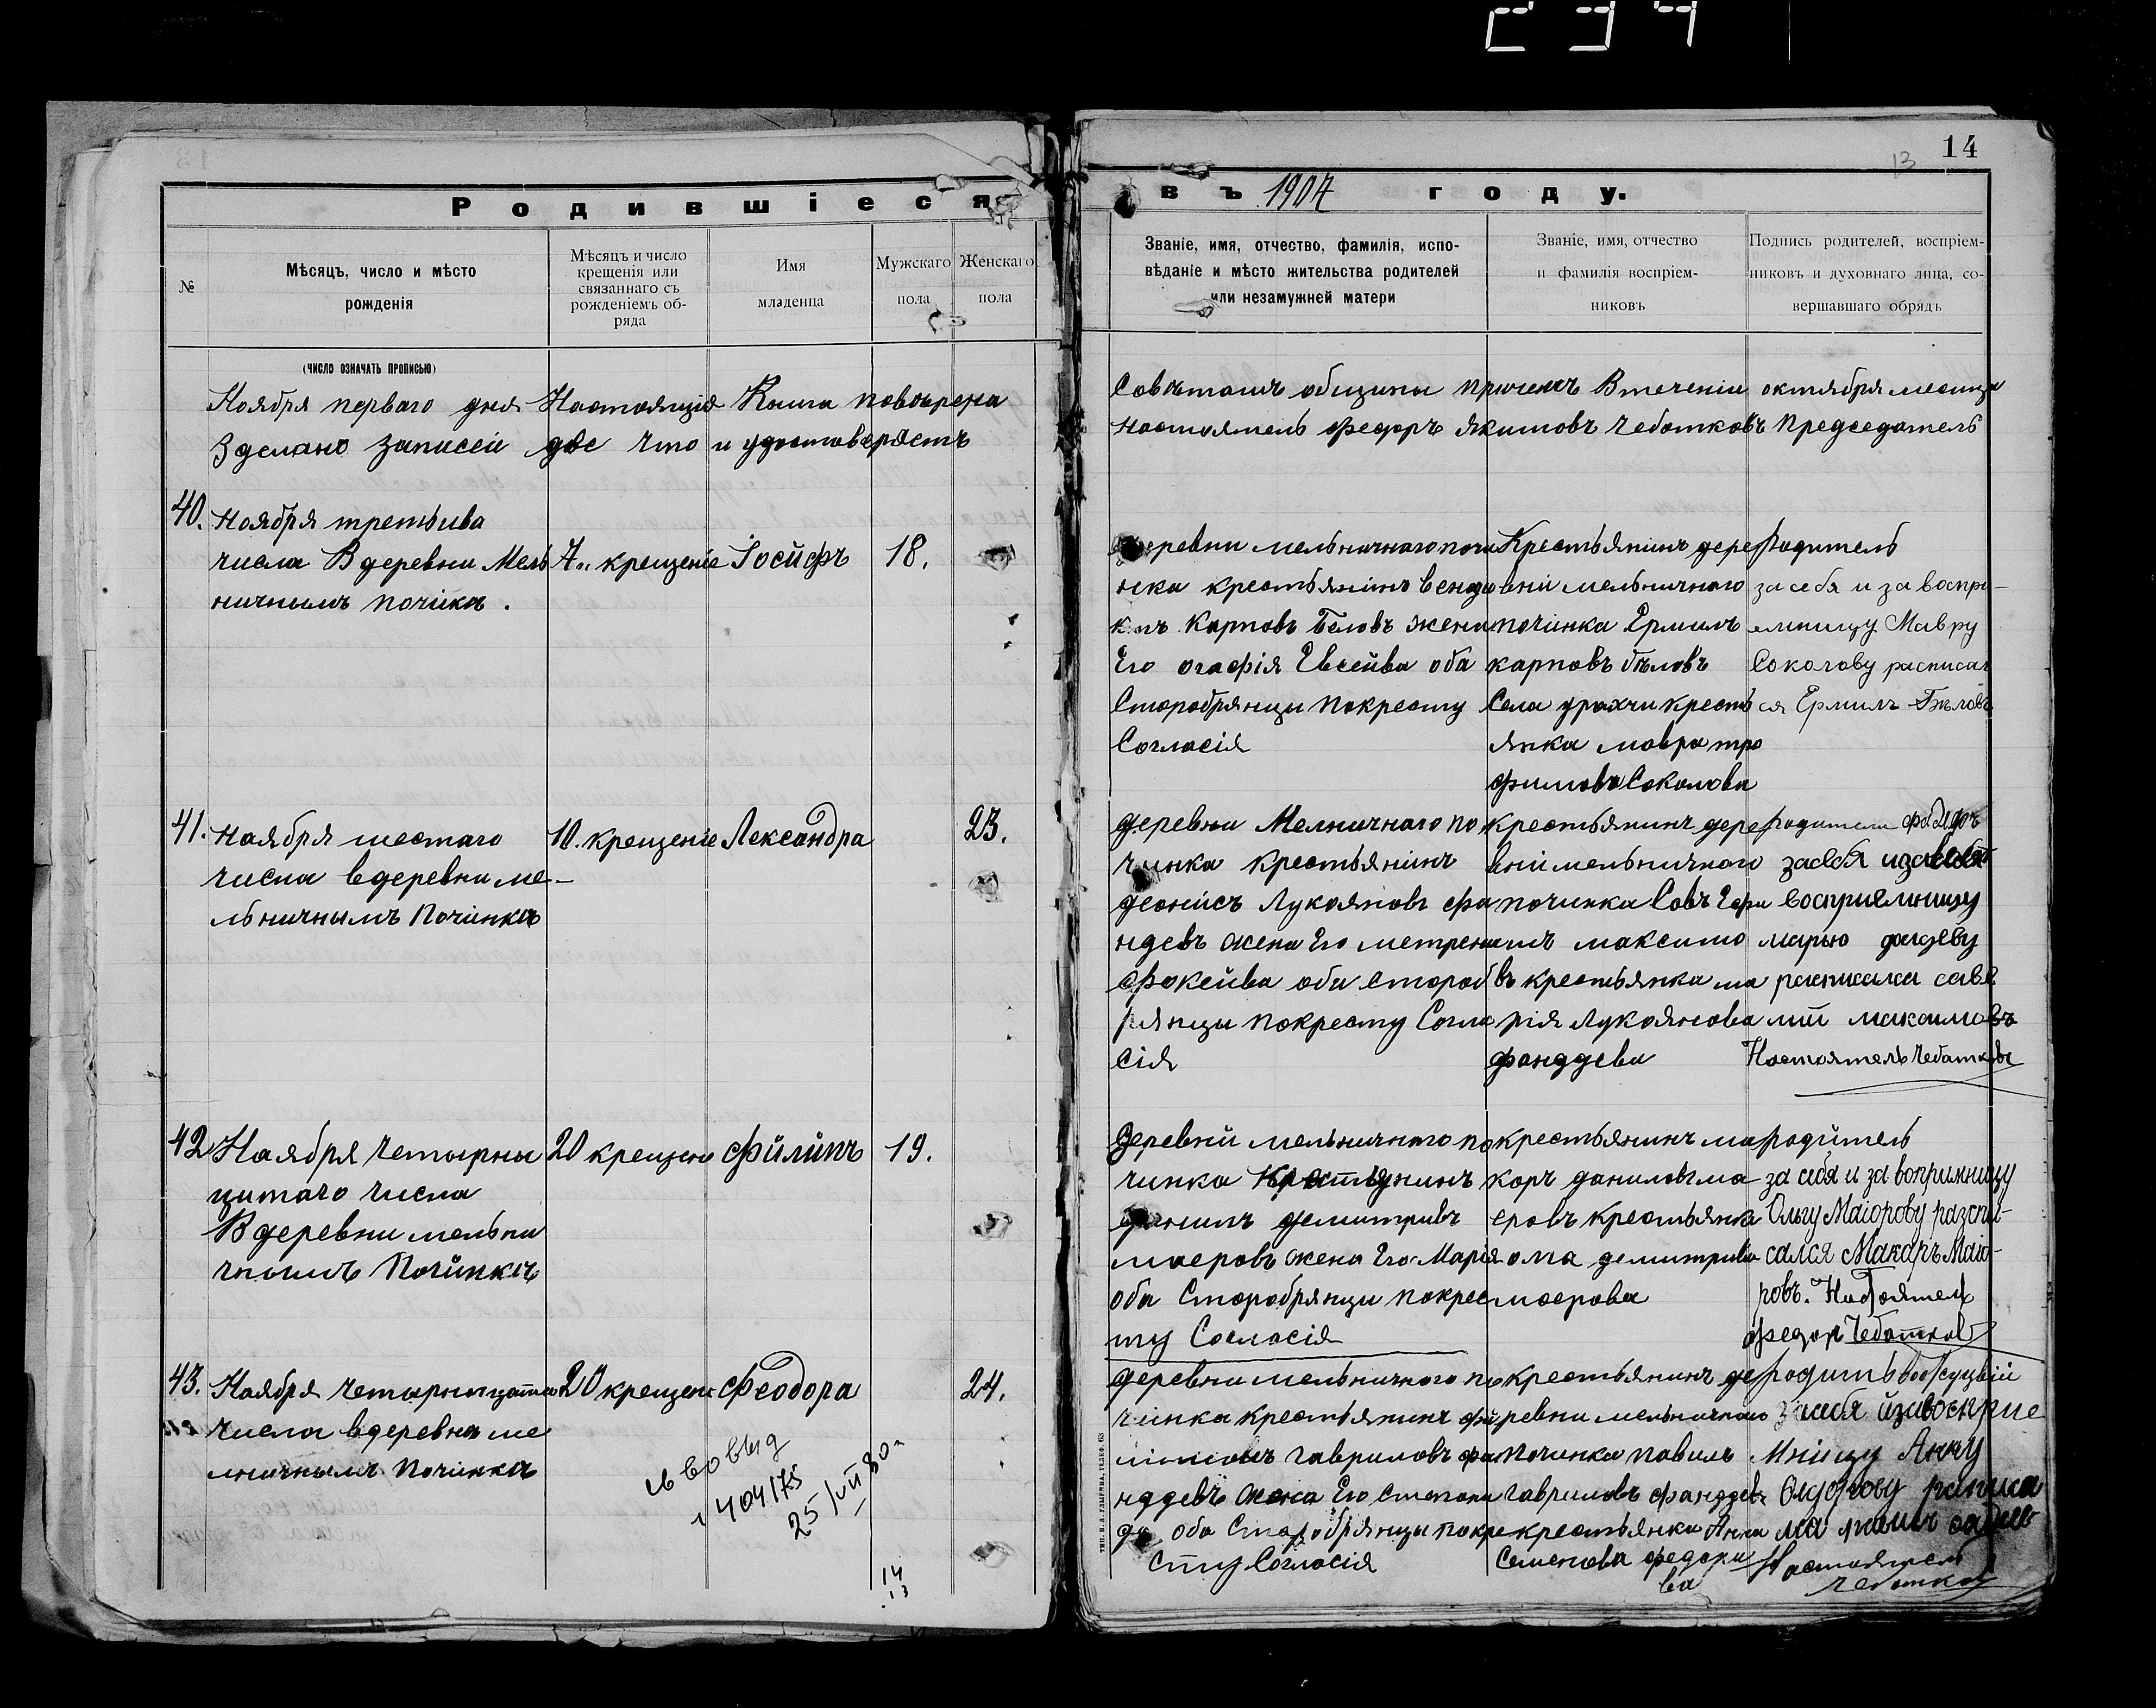 14
13
Родившіеся
въ 1907 году.
№
Мѣсяцъ, число и мѣсто
рожденія
Мѣсяцъ и число
крещенія или
связаннаго съ
рожденіемъ об-
ряда
Имя
младенца
Мужскаго
пола
Женскаго
пола
Званіе, имя, отчество, фамилія, испо-
вѣданіе и мѣсто жительства родителей
или незамужней матери
Званіе, имя, отчество
и фамилія воспріем-
никовъ
Подпись родителей, воспріем-
никовъ и духовнаго лица, со-
вершавшаго обрядъ
(число означать прописью)
Ноября перваго дня Настоящія Книга повѣрена
Зделано записей две что и удостоверяетъ
Совѣтомъ общины причемъ Втеченіи октября месяца
настоятель Федоръ Якимовъ Чеботковъ Председатель
40.
Ноября третьива
числа Вдеревни Мель
ничнымъ почінкъ.
7. крещеніе
Іосифъ
18.
деревни мельничнаго почи
нка крестьянинъ
Карповъ Беловъ жена
Его огафія Евсейва оба
Старобрянцы покресту
Согласія
Крестьянинъ дере
вни мельничнаго
починка Ермилъ
карповъ бѣловъ
Села урахчи кресть
янка мавра тро
фимова Соколова
Родитель
за себя и за воспрі-
емницу Мавру
Соколову расписал
ся Ермилъ Бѣловъ
41.
Ноября шестаго
числа вдеревни ме-
льничнымъ Починкъ
10. крещеніе
Лександра
23.
деревни Мелничнаго по
чинка крестьянінъ
деонісъ Лукояновъ фа
ндевъ жена Его метрена
Фокейва оба Староб
рянцы покресту Согла
сія
крестьянинъ дере
вні мельничнаго
починка
максимо
въ крестьянка ма
рія Лукоянова
фанддева
родители
засебя
восприемницу
марью
расписался саве
лій максимовъ
Настоятель Чеботковъ
42
Ноября Четырна
цатаго числа
Вдеревни мельни
чнымъ Почінкъ
20 крещени
Філіпъ
19.
Деревни мельничнаго по
чинка Крестьянинъ
данилъ демитривъ
маеровъ жена Его Марія
оба Старобрянцы покрес
ту Согласія
крестьянинъ ма
коръ даниловъ ма
еровъ крестьянка
ома демитрива
маерова
родитель
за себя и за воприимницу
Ольгу Маіорову разспи-
сался Макаръ Маіо-
ровъ. Настоятель
Федоръ Чеботковъ
43.
Ноября четырнацата
числа вдеревни ме
лничнымъ Починкъ
20 крещени
Феодора
24.
деревни мельничнаго по
чинка крестьянинъ фи
гавриловъ фа
нддевъ жена Его Степани
да оба Старобрянцы покре
сту Согласія
крестьянинъ де
ревни мельничнаго
Починка павилъ
гавриловъ фанддевъ
крестьянка Анна
Семенова федоки
ва
Мніцу Анну
Настоятель
Чеботковъ
404175
14
13